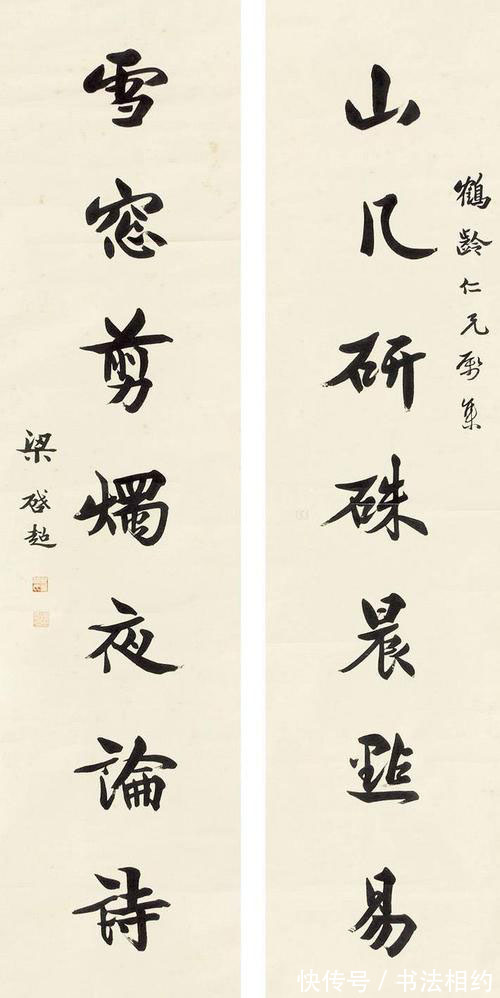 鶴齡仁兄屬集
山几研硃晨點易
雪窓剪燭夜論詩
梁啓超
快传号 / 书法相约